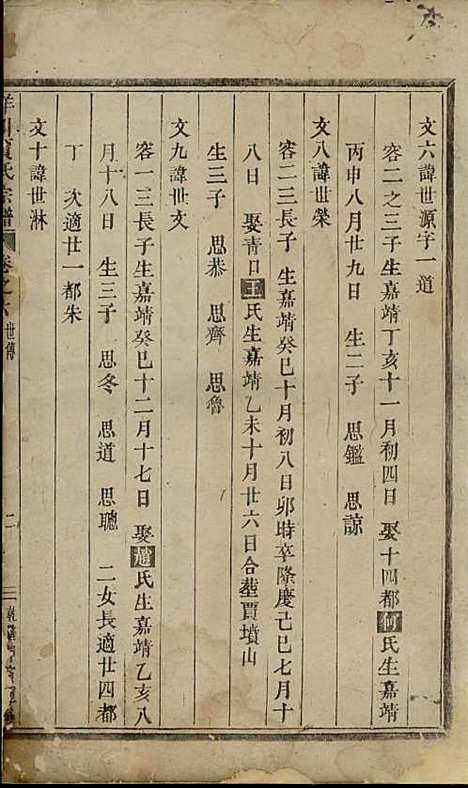 文六諱世源字一道
容二之三子生嘉靖丁亥十一月初四日　娶十四都何氏生嘉靖
丙申八月廿九日　生二子　思鑑　思諒
文八諱世榮
容二三長子　生嘉靖癸巳十月初八日卯時卒隆慶己巳七月十
八日　娶青口王氏生嘉靖乙未十月廿六日合塟賈墳山
生三子　思恭　思齊　思魯
文九諱世文
容一三長子生嘉靖癸巳十二月十七日　娶趙氏生嘉靖乙亥八
月十八日　生三子　思冬　思道　思聰　二女長適廿四都
丁　次適廿一都朱
文十諱世淋
氏宗譜　卷之　世傳　二